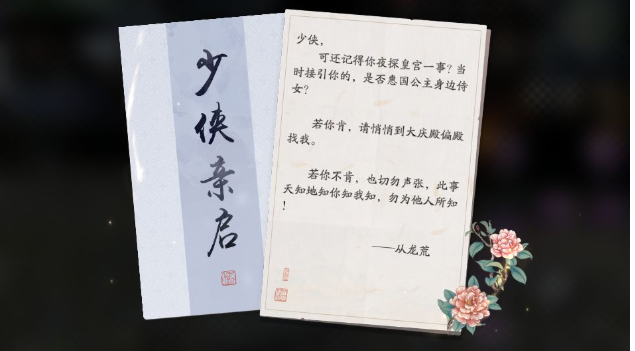 少侠亲启
少侠,
可还记得你夜探皇宫一事?当
时接引你的,是否惠国公主身边侍
女?
若你肯,请悄悄到大庆殿偏殿
找我。
若你不肯,也切勿声张,此事
天知地知你知我知,勿为他人所知
!
——从龙荒